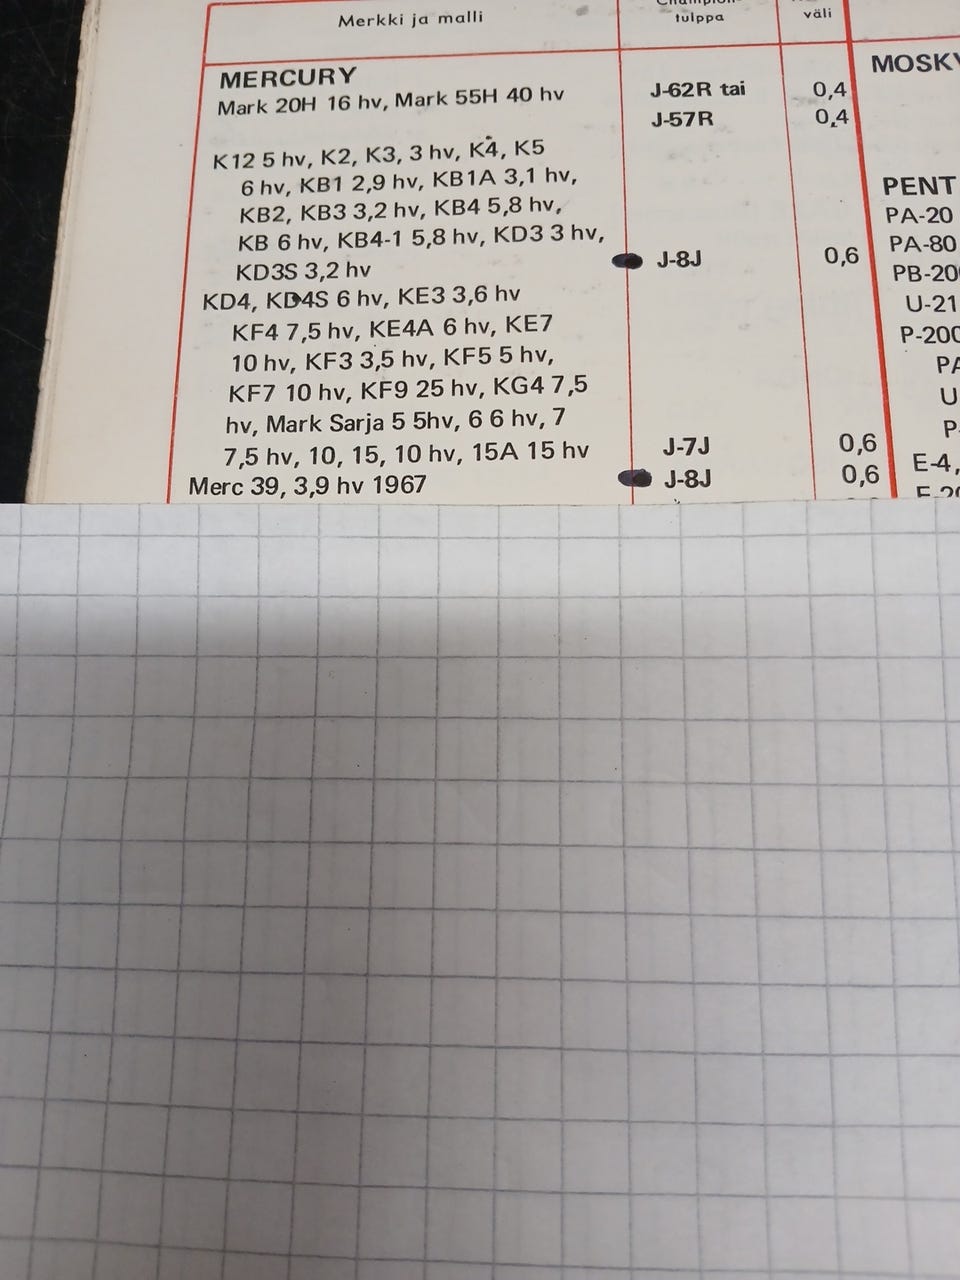 Merkki ja malli
tulppa
väli
MERCURY
Mark 20H 16 hv, Mark 55H 40 hv J-62R tai 0,4
J-57R 0,4
K12 5 hv, K2, K3, 3 hv, K4, K5
6 hv, KB1 2,9 hv, KB1A 3,1 hv,
KB2, KB3 3,2 hv, KB4 5,8 hv,
KB 6 hv, KB4-1 5,8 hv, KD3 3 hv,
KD3S 3,2 hv J-8J 0,6
KD4, KD4S 6 hv, KE3 3,6 hv
KF4 7,5 hv, KE4A 6 hv, KE7
10 hv, KF3 3,5 hv, KF5 5 hv,
KF7 10 hv, KF9 25 hv, KG4 7,5
hv, Mark Sarja 5 5hv, 6 6 hv, 7
7,5 hv, 10, 15, 10 hv, 15A 15 hv J-7J 0,6
Merc 39, 3,9 hv 1967 J-8J 0,6
MOSKV
PENT
PA-20
PA-80
PB-20
U-21
P-200
PA
U
P-
E-4,